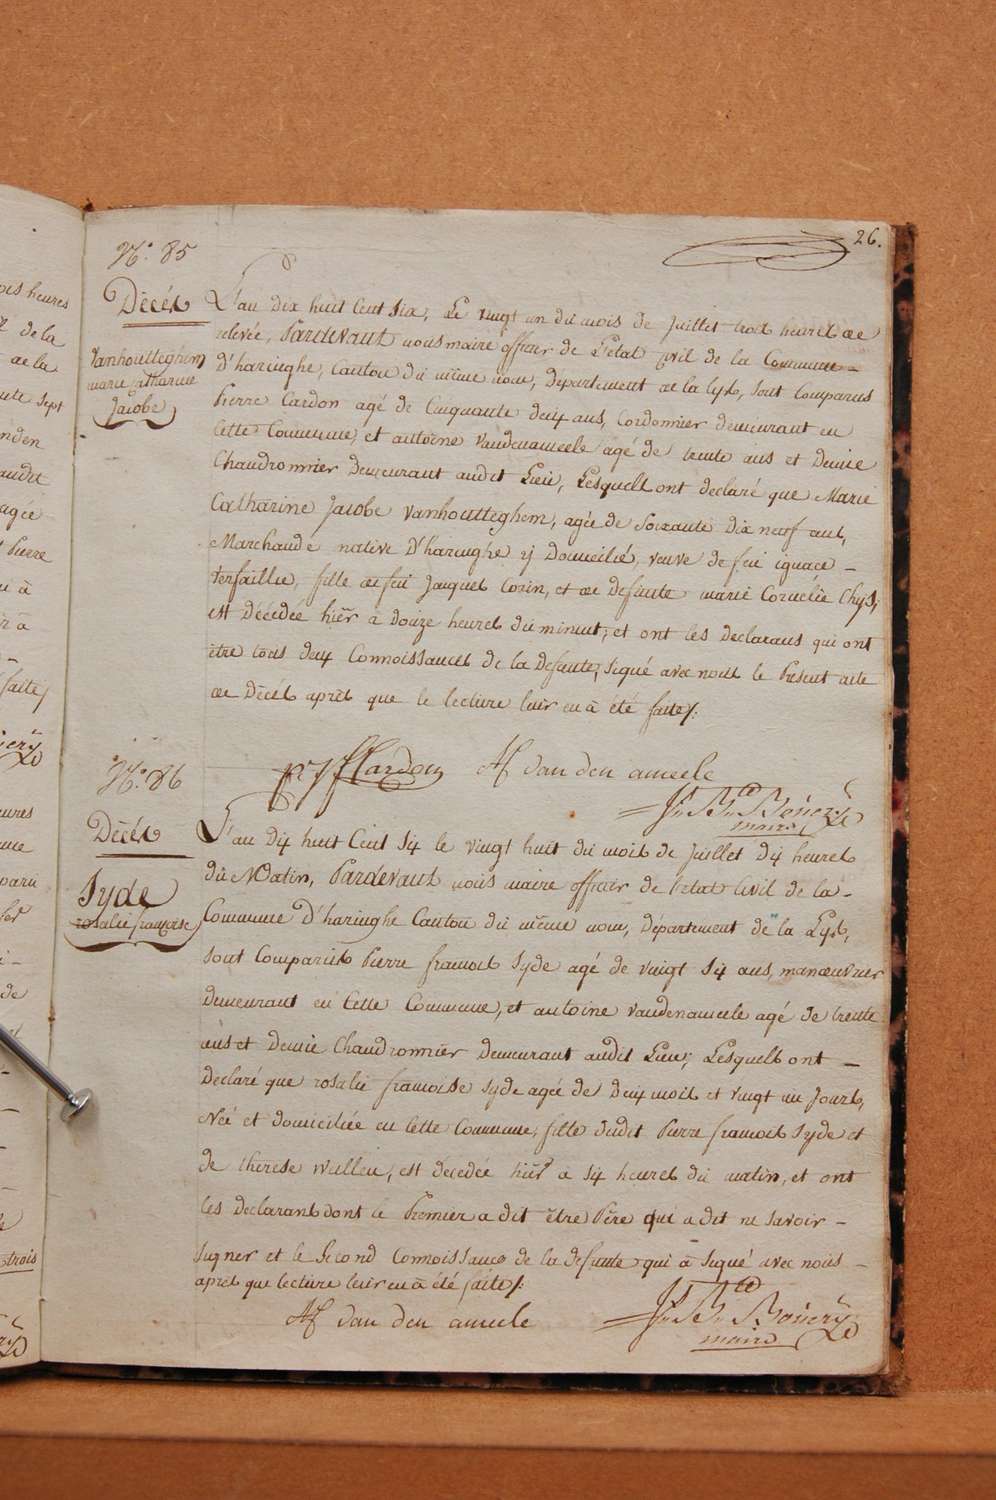 26.
N.° 85
Décés
Vanhoutteghem
marie Catharine
Jacobe
L'an dix huit Cent Six, Le vingt un du mois de Juillet trois heures de
relevée, Pardevant nous maire officier de L'etat Civil de la Commune –
d'haringhe, Canton du même nom, département de la Lys, sont Comparus
Pierre Cardon agé de Cinquante deux ans, Cordonnier demeurant en
Cette Commune, et antoine Vandenameele agé de trente ans et Demie
Chaudronnier Demeurant audit Lieu, Lesquels ont declaré que Marie
Catharine Jacobe Vanhoutteghem, agée de Soixante dix neuf ans,
Marchande native D'haringhe y Domicilié, veuve de feu ignace –
terfaillie, fille de feu Jacques Corin, et de Defunte marie Cornélie Chys,
est Décédée hier à douze heures du minuit, et ont les declarans qui ont
être tous deux Connoissances de la Defunte, signé avec nous le Présent acte
de Décés aprés que le lecture leur en à été faite/.
p: j: f Cardon AF van den ameele
J.n B.te Bénezy
maire
N.° 86
Décés
Syde
rosalie françoise
L'an dix huit Cent Six le vingt huit du mois de Juillet dix heures
du Matin, Pardevant nous maire officier de l'etat Civil de la –
Commune D'haringhe Canton du même nom, Département de la Lys,
sont Comparus Pierre francois Syde agé de vingt Six ans, manœuvrier
demeurant en Cette Commune, et antoine vandenameele agé de trente
ans et Demie Chaudronnier Demeurant audit Lieu, Lesquels ont –
Declaré que rosalie francoise Syde agée de Deux mois et vingt un Jours,
Née et domiciliée en Cette Commune, fille dudit Pierre francois Syde et
de therese wullen, est décedée hier a six heures du matin, et ont
les declarans dont le Premier a dit être Pére qui a dit ne savoir –
Signer et le Second Connoissance de la defunte qui à Signé avec nous –
aprés que lecture leur en à été faite/.
AF van den ameele
J.n B.te Bénezy
maire